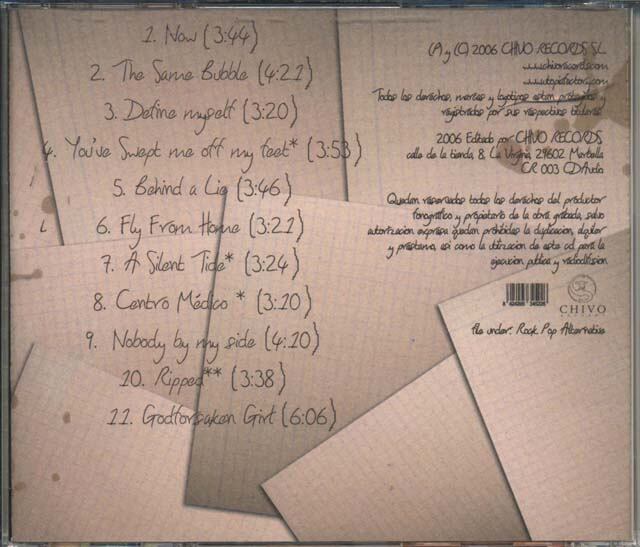 1. Now (3:44)
2. The Same Bubble (4:21)
3. Define myself (3:20)
4. You've Swept me off my feet* (3:53)
5. Behind a Lie (3:46)
6. Fly From Home (3:21)
7. A Silent Tide* (3:24)
8. Centro Médico * (3:10)
9. Nobody by my side (4:10)
10. Ripped** (3:38)
11. Godforsaken Girl (6:06)
(P) y (C) 2006 CHIVO RECORDS SL
www.chivorecords.com
www.utopiafactory.com
Todos los derechos, marcas y logotipos estan protegidos y
registrados por sus respectivos titulares
2006 Editado por CHIVO RECORDS
calle de la tienda 8, La Virginia, 29602 Marbella
CR 003 CDAudio
Quedan reservados todos los derechos del productor
fonográfico y propietario de la obra grabada, salvo
autorizacion expresa quedan prohibidas la duplicacion, alquiler
y prestamo, asi como la utilizacion de este cd para la
ejecucion publica y radiodifusion
CHIVO
RECORDS
file under: Rock Pop Alternative